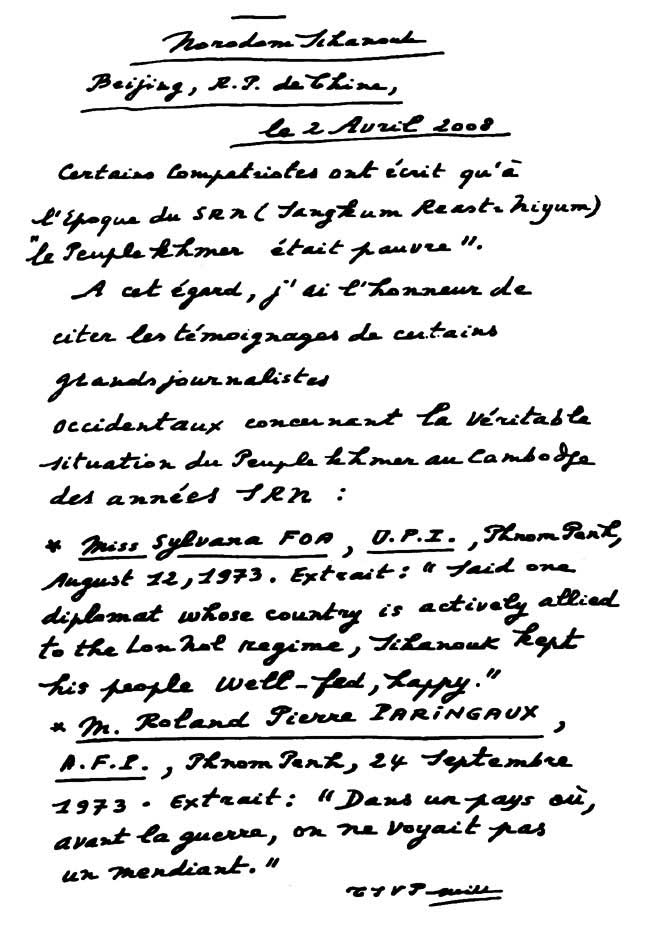 Norodom Sihanouk
Beijing, R.P. de Chine,
le 2 Avril 2008
Certains Compatriotes ont écrit qu'à
l'Epoque du SRN (Sangkum Reastr Niyum)
"le Peuple khmer était pauvre".
A cet égard, j'ai l'honneur de
citer les témoignages de certains
grands journalistes
occidentaux concernant la véritable
situation du Peuple khmer au Cambodge
des années SRN :
* Miss Sylvana FOA, U.P.I., Phnom Penh,
August 12, 1973. Extrait : "Said one
diplomat whose country is actively allied
to the Lon Nol regime, Sihanouk kept
his people well-fed, happy."
* M. Roland Pierre PARINGAUX,
A.F.P., Phnom Penh, 24 Septembre
1973. Extrait : "Dans un pays où,
avant la guerre, on ne voyait pas
un mendiant."
TSVP